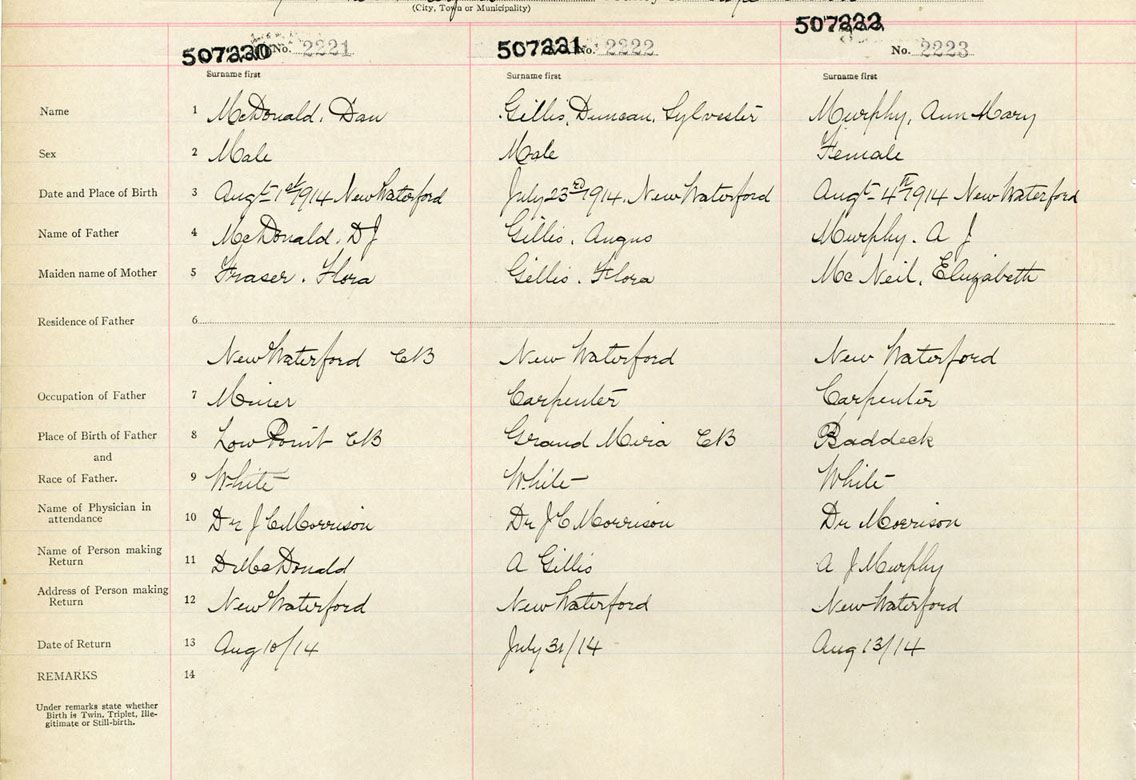 (City, Town or Municipality)
507220 No. 2221 507221 No. 2222 507222 No. 2223
Surname first Surname first Surname first
Name 1 McDonald, Dan Gillis, Duncan, Sylvester Murphy, Ann Mary
Sex 2 Male Male Female
Date and Place of Birth 3 Augt 1st 1914 New Waterford July 23rd 1914, New Waterford Augt 4th 1914 New Waterford
Name of Father 4 McDonald, D J Gillis, Angus Murphy, A J
Maiden name of Mother 5 Fraser, Flora Gillis, Flora Mc Neil, Elizabeth
Residence of Father 6
New Waterford CB New Waterford New Waterford
Occupation of Father 7 Miner Carpenter Carpenter
Place of Birth of Father 8 Low Point CB Grand Mira CB Baddeck
and
Race of Father. 9 White White White
Name of Physician in
attendance 10 Dr J C Morrison Dr J C Morrison Dr Morrison
Name of Person making
Return 11 D McDonald A Gillis A J Murphy
Address of Person making
Return 12 New Waterford New Waterford New Waterford
Date of Return 13 Aug 10/14 July 31/14 Aug 13/14
REMARKS 14
Under remarks state whether
Birth is Twin, Triplet, Ille-
gitimate or Still-birth.